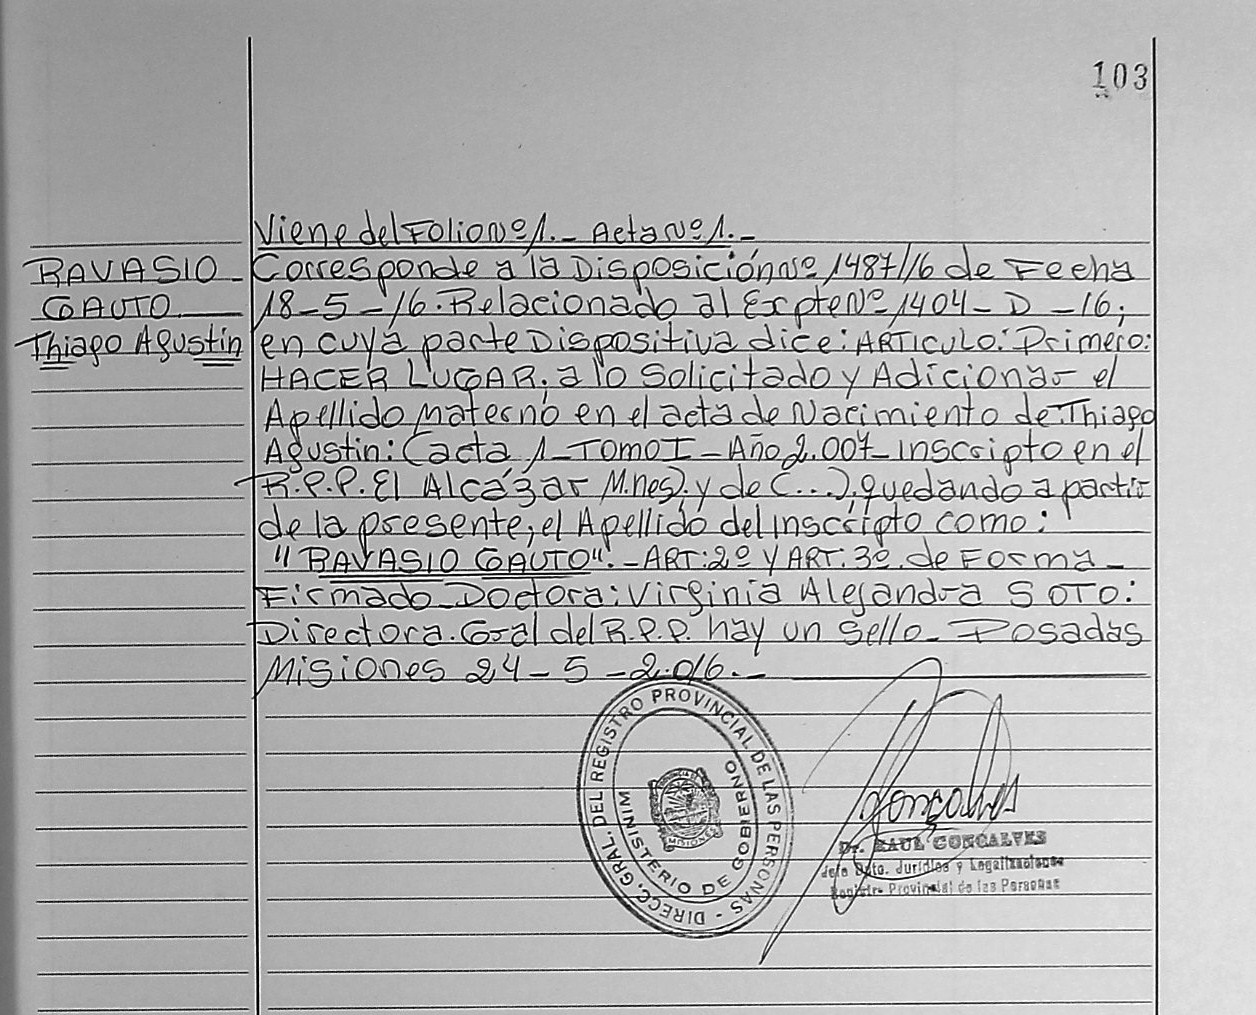 103
Viene del Folio Nº 1.- Acta Nº 1.-
RAVASIO
GAUTO
Thiago Agustin
Corresponde a la Disposición Nº 1487/16 de Fecha
18-5-16. Relacionado al Expte Nº 1404-D-16;
en cuya parte Dispositiva dice: ARTICULO: Primero:
HACER LUGAR. a lo Solicitado y Adicionar el
Apellido Materno en el acta de Nacimiento de: Thiago
Agustin: (acta 1-TOMO I-Año 2.007- Inscripto en el
R.P.P. El Alcázar M.nes). y de (...), quedando a partir
de la presente; el Apellido del Inscripto como:
"RAVASIO GAUTO". -ART: 2º Y ART: 3º. de Forma-
Firmado-Doctora: Virginia Alejandra SOTO:
Directora. Gral del R.P.P. hay un sello- Posadas
Misiones 24-5-2.016.-
DIRECC. GRAL. DEL REGISTRO PROVINCIAL DE LAS PERSONAS -
MINISTERIO DE GOBIERNO
MISIONES
Gonçalves
Dr. RAUL GONCALVES
Jefe Dpto. Jurídico y Legalizaciones
Registro Provincial de las Personas